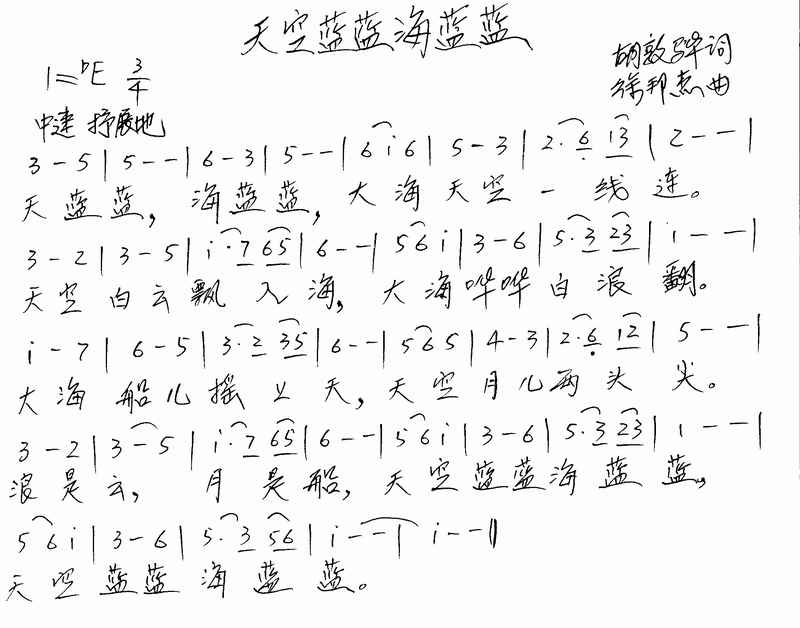 天空蓝蓝海蓝蓝
1=♭E 3/4
胡敦骅词
徐邦杰曲
中速 抒展地
3 - 5 | 5 - - | 6 - 3 | 5 - - | 6 i 6 | 5 - 3 | 2· 6 13 | 2 - - |
天蓝蓝，海蓝蓝，大海天空一线连。
3 - 2 | 3 - 5 | i· 7 65 | 6 - - | 5 6 i | 3 - 6 | 5· 3 23 | 1 - - |
天空白云飘入海，大海哗哗白浪翻。
i - 7 | 6 - 5 | 3· 2 35 | 6 - - | 5 6 5 | 4 - 3 | 2· 6 12 | 5 - - |
大海船儿摇上天，天空月儿两头尖。
3 - 2 | 3 - 5 | i· 7 65 | 6 - - | 5 6 i | 3 - 6 | 5· 3 23 | 1 - - |
浪是云，月是船，天空蓝蓝海蓝蓝，
5 6 i | 3 - 6 | 5· 3 56 | i - - | i - - ‖
天空蓝蓝海蓝蓝。